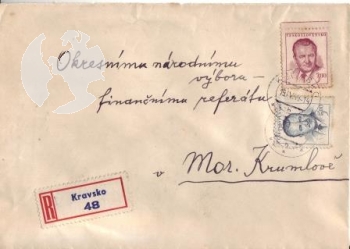 ČESKOSLOVENSKO
Okresnímu národnímu
výboru –
finančnímu referátu
v Mor. Krumlově
R
Kravsko
48